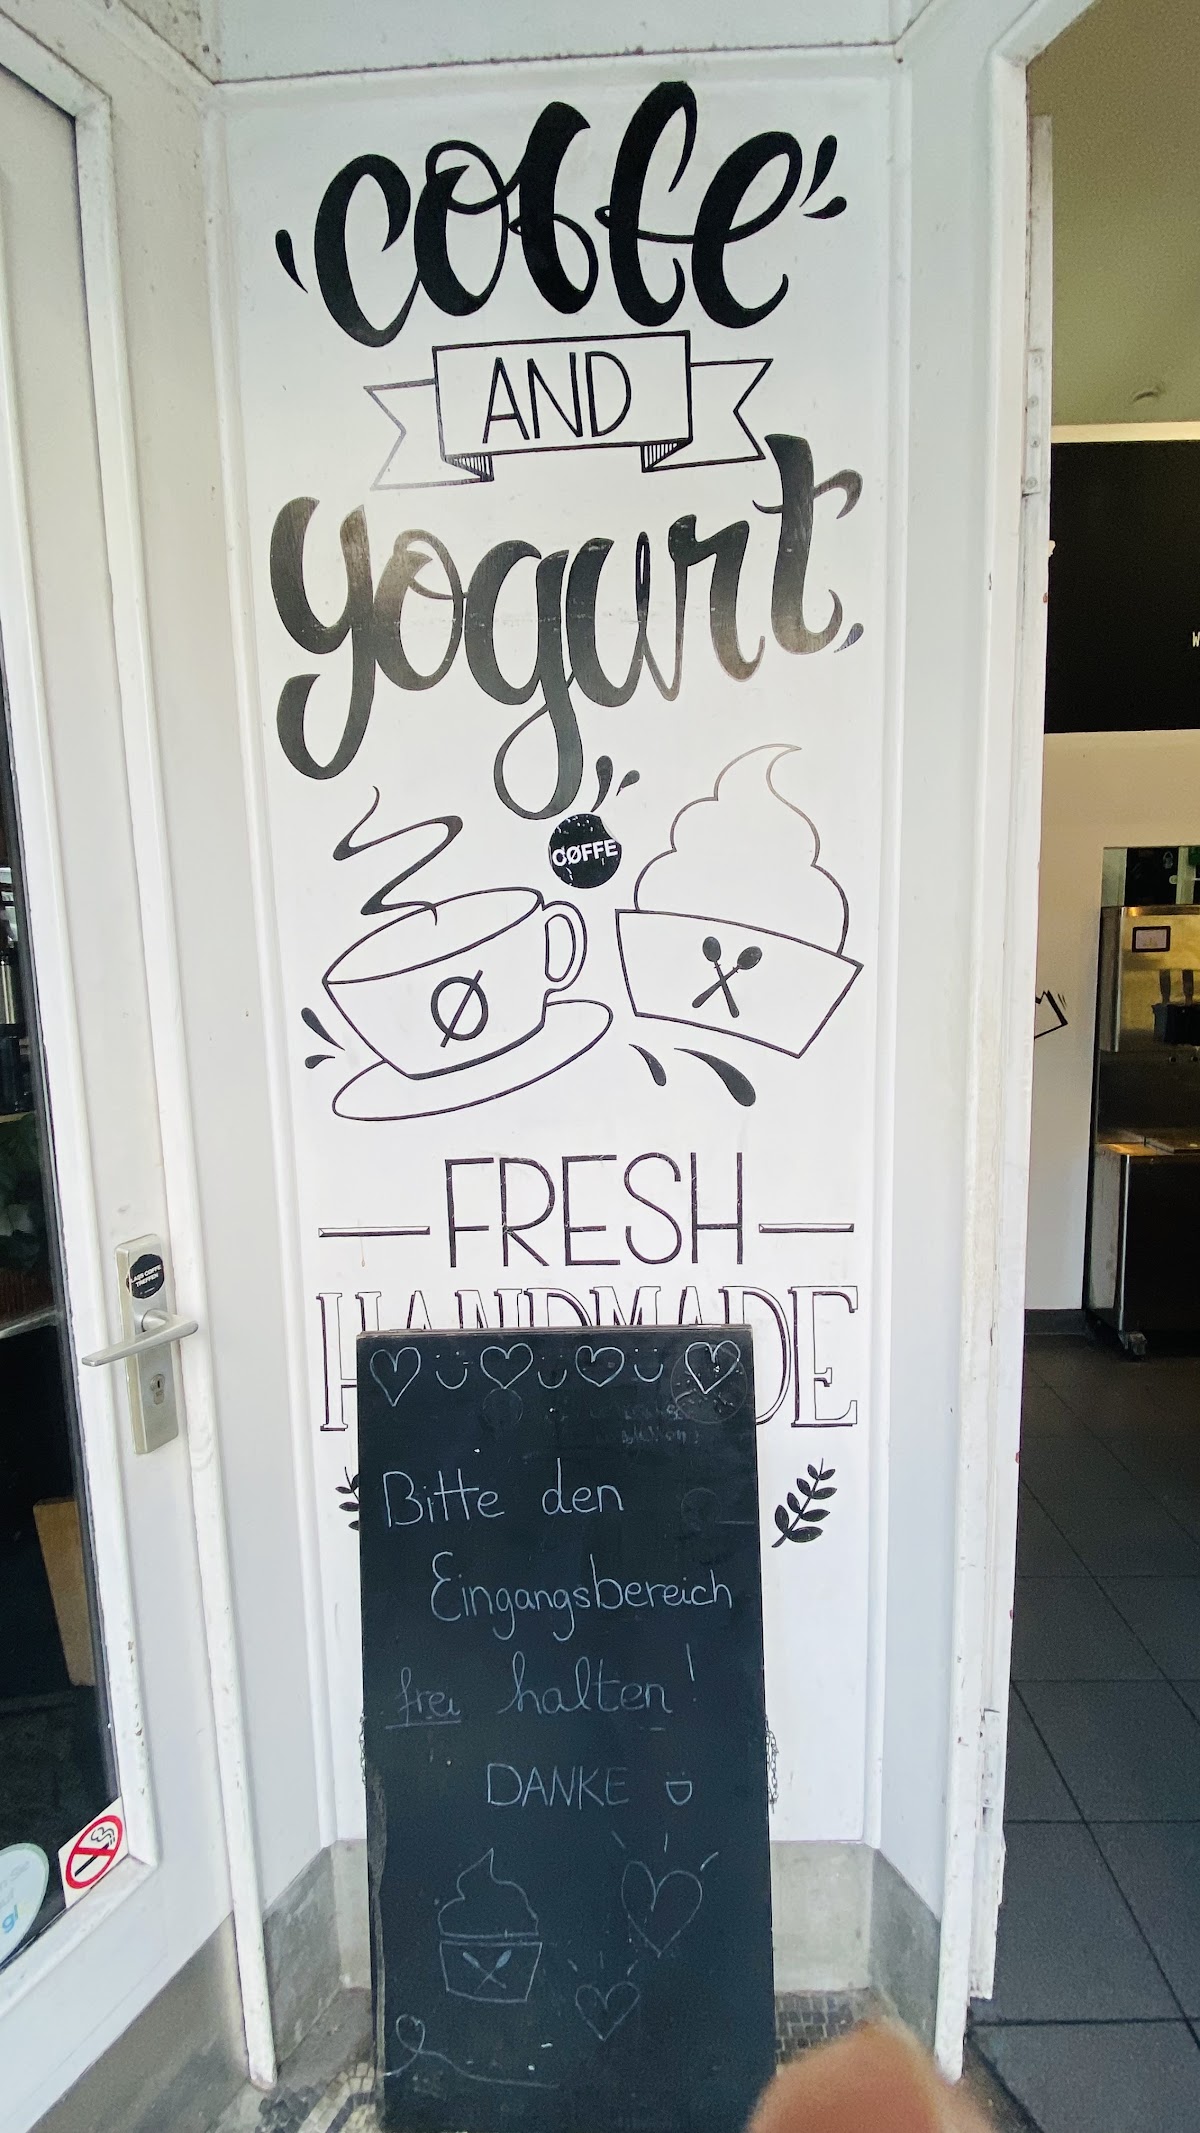 coffe
AND
yogurt
CØFFE
Ø
FRESH
HANDMADE
TREFFEN
Bitte den
Eingangsbereich
frei halten!
DANKE